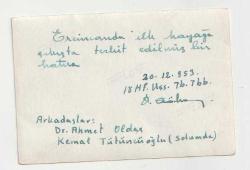 Erzincanda ilk kayağa
çıkışta tesbit edilmiş bir
hatıra
20.12.953
18 Hf. Uss. Tb. Tbb.
Arkadaşlar:
Dr. Ahmet Oldaş
Kemal Tütüncüoğlu (Solumda)